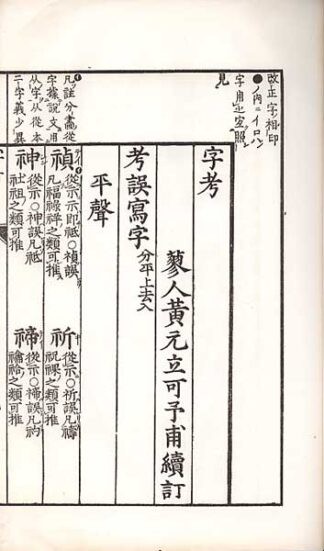 改正字相印
●ノ内ニイロハ
字用也宜照
見
字考
蓼人黃元立可予甫續訂
考誤寫字分平上去入
平聲
凡註分畫從
字據說文用
从字从從本
二字義少異
禎從示示即祇○禎誤
凡福祿祥之類可推
祈從示○祈誤凡禱
祝祼之類可推
神從示○神誤凡祇
社祖之類可推
禘從示○禘誤凡礿
禴祫之類可推